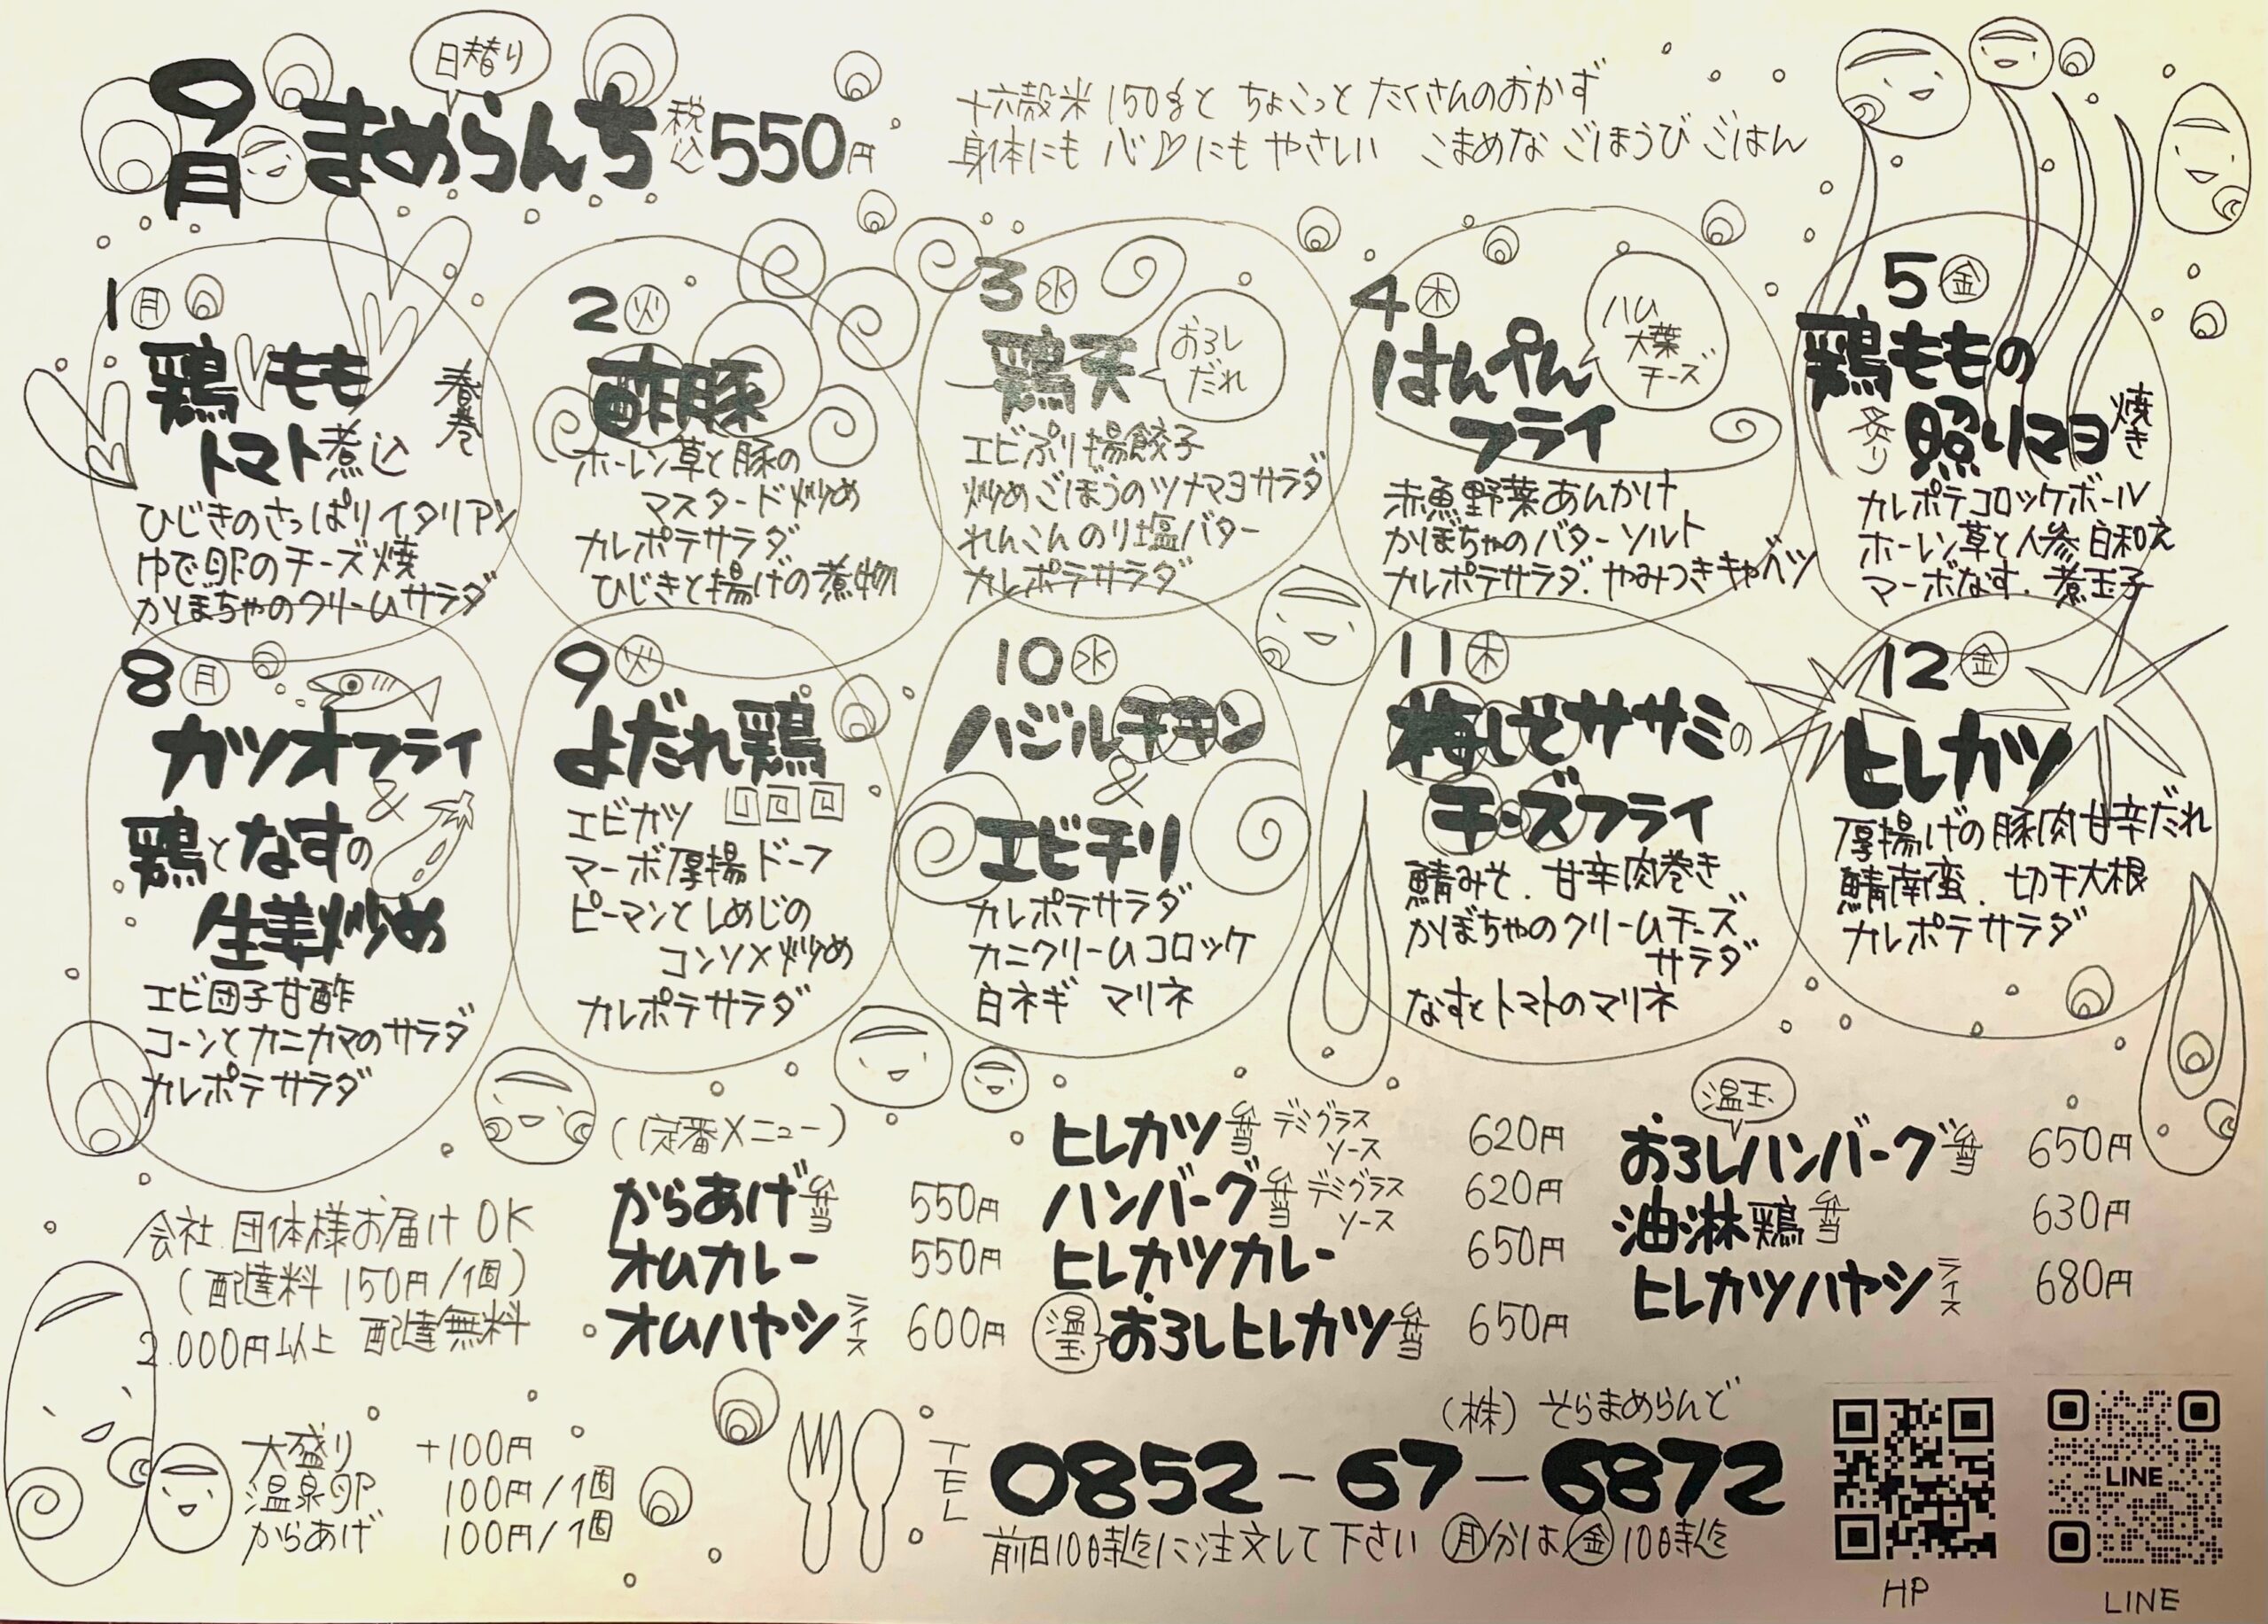 日替り
9月 まめらんち 税込550円
十六穀米150gと ちょこっと たくさんのおかず
身体にも 心♡にも やさしい こまめな ごほうび ごはん
1 月
鶏もも
トマト煮込
春巻
ひじきのさっぱりイタリアン
ゆで卵のチーズ焼
かぼちゃのクリームサラダ
2 火
酢豚
ホーレン草と豚の
マスタード炒め
カレポテサラダ
ひじきと揚げの煮物
3 水
鶏天
おろし
だれ
エビぷり揚餃子
炒めごぼうのツナマヨサラダ
れんこんのり塩バター
カレポテサラダ
4 木
はんぺん
フライ
ハム
大葉
チーズ
赤魚野菜あんかけ
かぼちゃのバターソルト
カレポテサラダ.やみつきキャベツ
5 金
鶏ももの
炙り 照りマヨ 焼き
カレポテコロッケボール
ホーレン草と人参白和え
マーボなす.煮玉子
8 月
カツオフライ
&
鶏となすの
生姜炒め
エビ団子甘酢
コーンとカニカマのサラダ
カレポテサラダ
9 火
よだれ鶏
エビカツ
マーボ厚揚ドーフ
ピーマンとしめじの
コンソメ炒め
カレポテサラダ
10 水
バジルチキン
&
エビチリ
カレポテサラダ
カニクリームコロッケ
白ネギ マリネ
11 木
梅しそササミの
チーズフライ
鯖みそ.甘辛肉巻き
かぼちゃのクリームチーズ
サラダ
なすとトマトのマリネ
12 金
ヒレカツ
厚揚げの豚肉甘辛だれ
鯖南蛮.切干大根
カレポテサラダ
(定番メニュー)
からあげ弁当 550円
オムカレー 550円
オムハヤシライス 600円
ヒレカツ弁当 デミグラスソース 620円
ハンバーグ弁当 デミグラスソース 620円
ヒレカツカレー 650円
温玉 おろしヒレカツ弁当 650円
温玉
おろしハンバーグ弁当 650円
油淋鶏弁当 630円
ヒレカツハヤシライス 680円
会社.団体様お届けOK
(配達料 150円/1個)
2.000円以上 配達無料
大盛り +100円
温泉卵 100円/1個
からあげ 100円/1個
(株)そらまめらんど
TEL 0852-67-6872
前日10時迄に注文して下さい 月分は金10時迄
HP
LINE
LINE